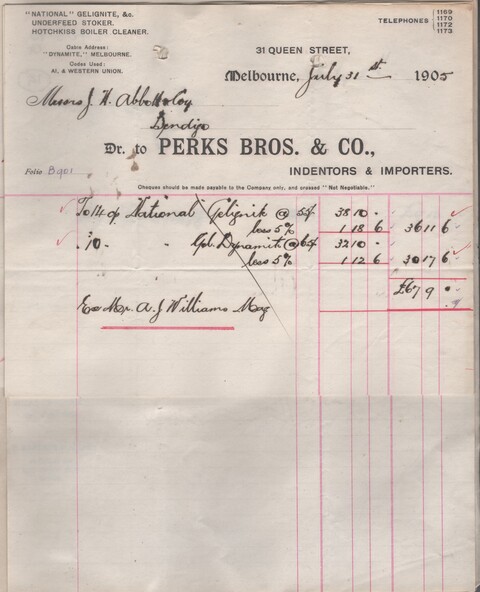 "NATIONAL" GELIGNITE, &c.
UNDERFEED STOKER.
HOTCHKISS BOILER CLEANER.
Cable Address:
"DYNAMITE," MELBOURNE.
Codes Used:
A1, & WESTERN UNION.
TELEPHONES 1169
1170
1172
1173
31 QUEEN STREET,
Melbourne, July 31st 1905
Messrs J. H. Abbott & Coy
Bendigo
Dr. to PERKS BROS. & CO.,
Folio B901
INDENTORS & IMPORTERS.
Cheques should be made payable to the Company only, and crossed "Not Negotiable."
To 14 cs National Gelignite @ 55/ 38 10 -
less 5% 1 18 6 36 11 6
" 10 - - Gel. Dynamite @ 65/ 32 10 -
less 5% 1 12 6 30 17 6
£67 9 -
Ex Mr. A. J. Williams Mag